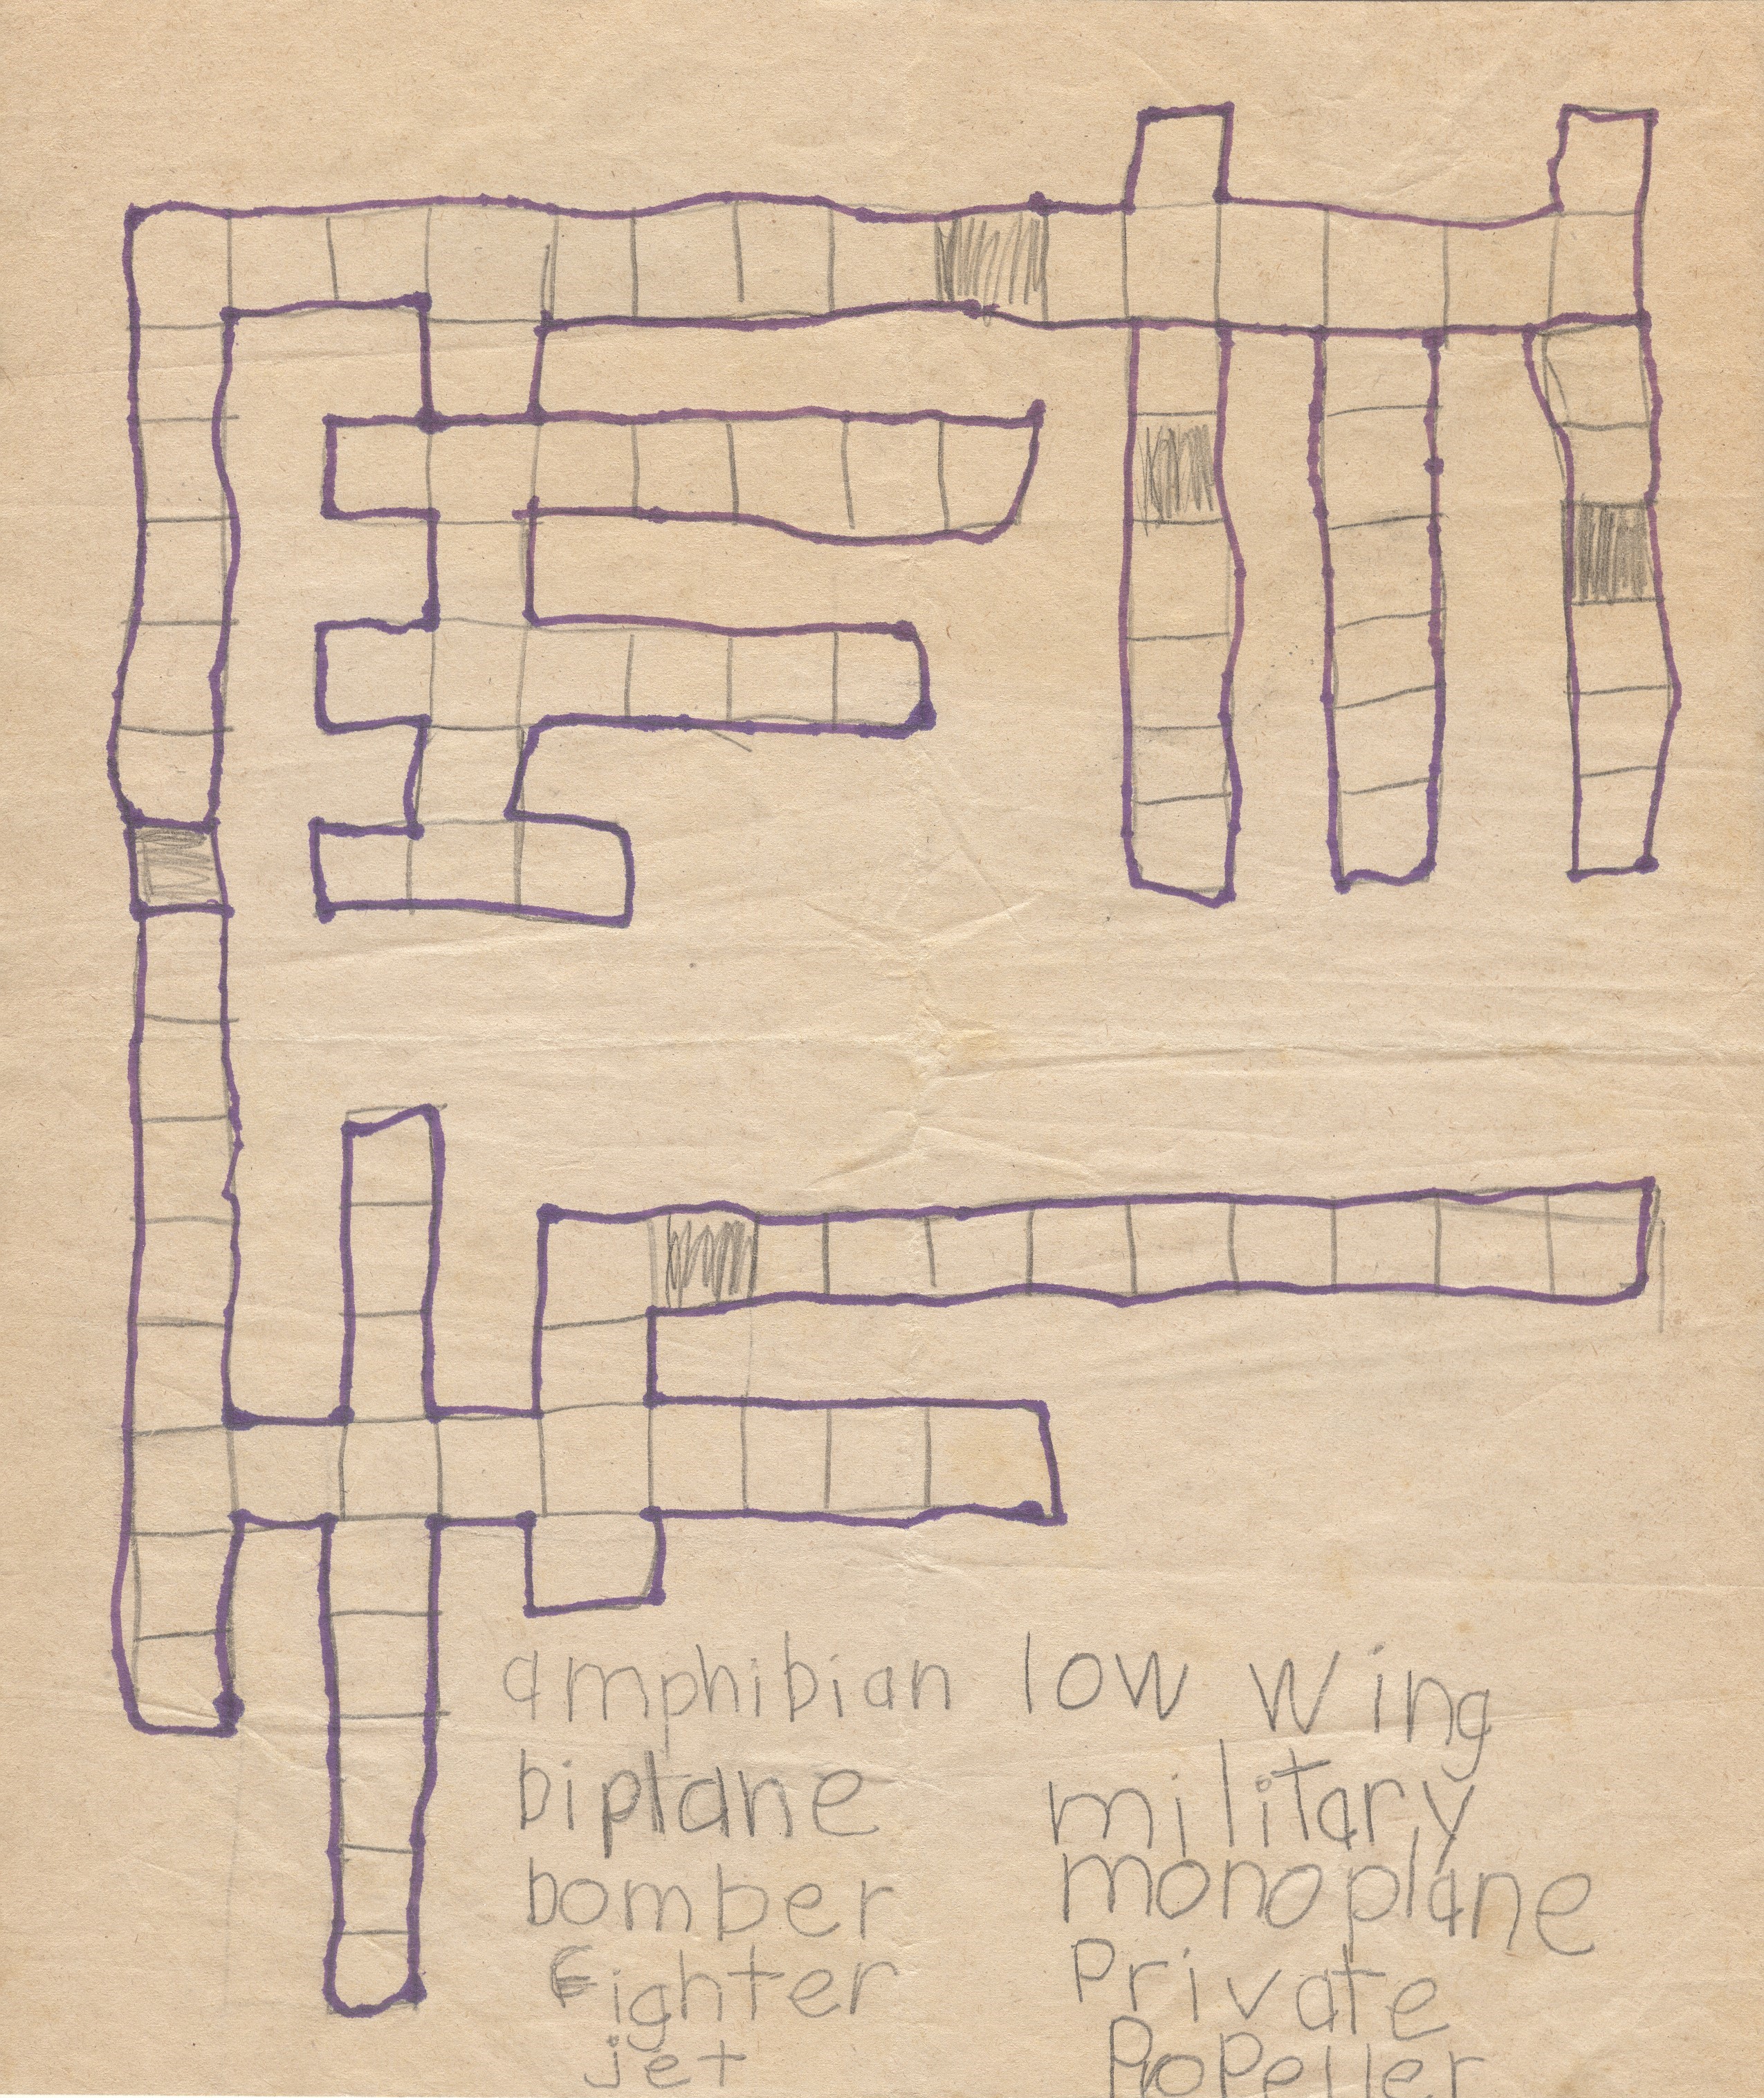 amphibian
biplane
bomber
fighter
jet
low wing
military
monoplane
Private
ProPeller